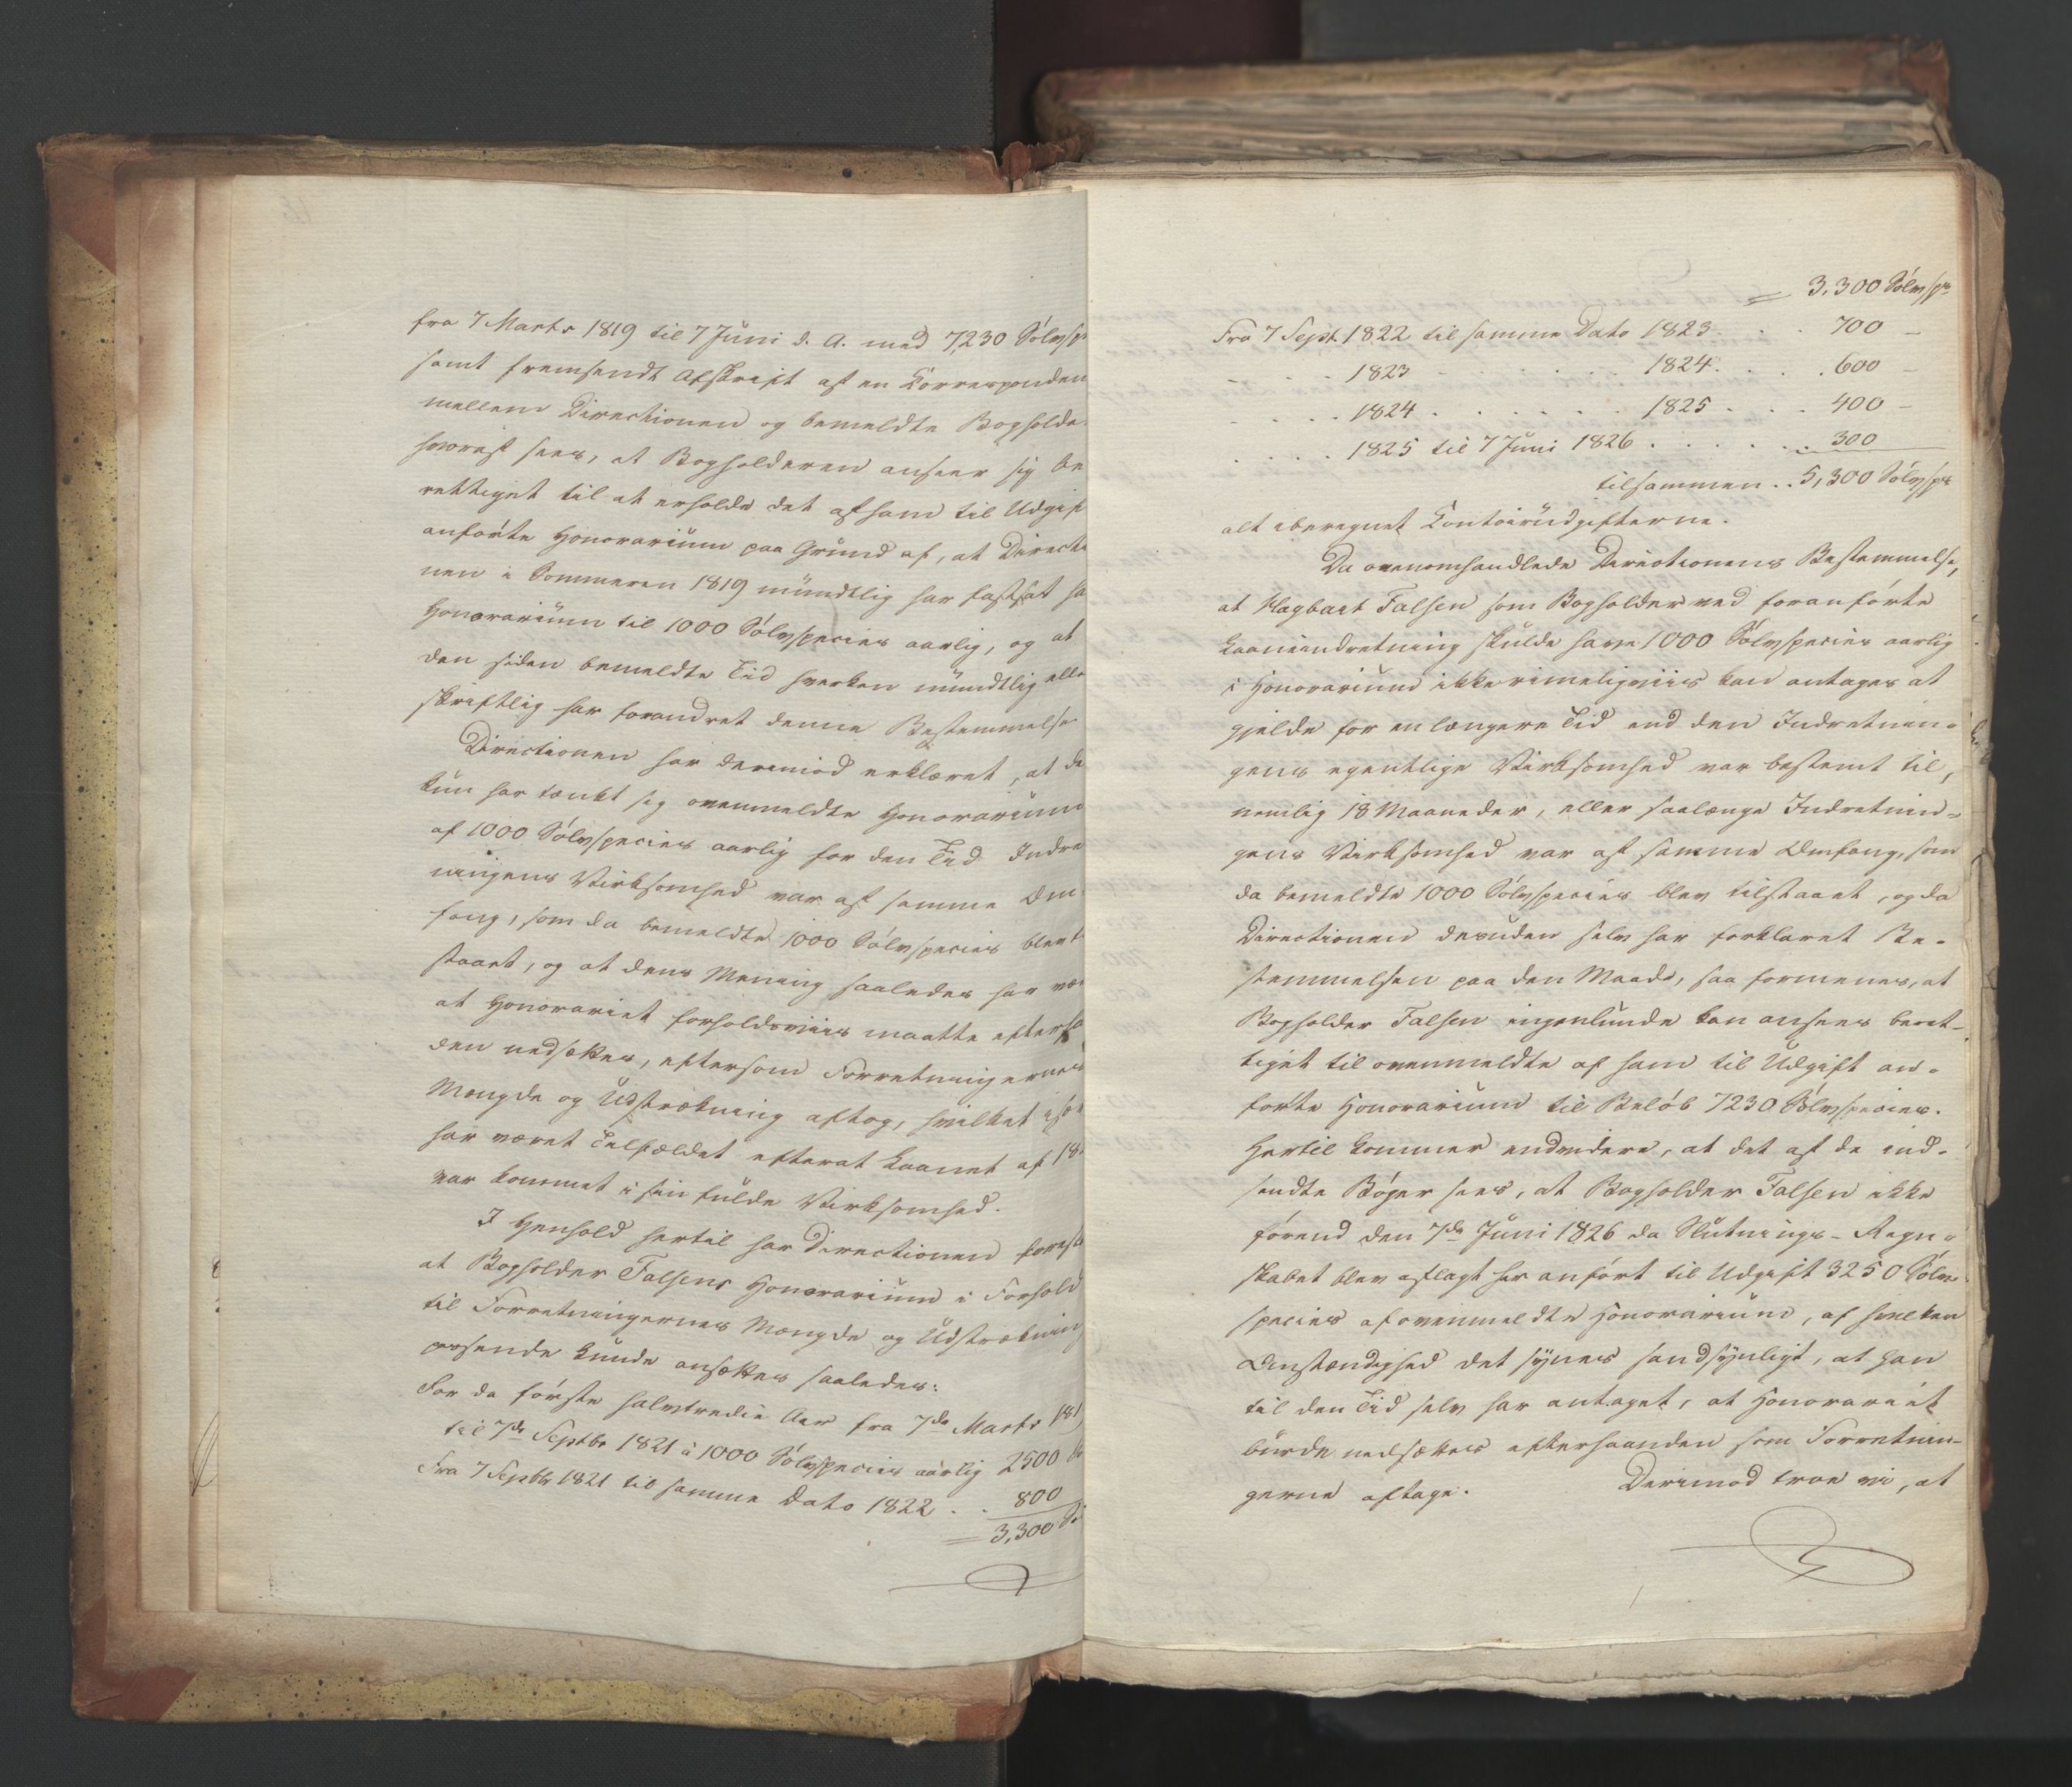 fra 7 Marts 1819 til 7 Juni d. A. med 7230 Sölvsp
samt fremsendt Afskrift af en Correspondен
mellem Directionen og bemeldte Bogholde
hvoraf sees, at Bogholderen anseer sig be
rettiget til at erholde det af ham til Udgif
anförte Honorarium paa Grund af, at Directi
nen i Sommeren 1819 mundtlig har fastsat ha
Honorarium til 1000 Sölvspecies aarlig, og at
den siden bemeldte Tid hverken mundtlig elle
skriftlig har forandret denne Bestemmelse
Directionen har derimod erklæret, at de
kun har tænkt sig ovenmeldte Honorarium
af 1000 Sölvspecies aarlig for den Tid Indre
ningens Virksomhed var af samme Om
fang, som da bemeldte 1000 Sölvspecies blev t
staaet, og at dens Mening saaledes har vær
at Honorariet forholdsviis maatte efterha
den nedsættes, eftersom Forretningernes
Mængde og Udstrækning aftog, hvilket især
har været Tilfældet efterat Laanet af 18
var kommet i sin fulde Virksomhed.
I Henhold hertil har Directionen forest
at Bogholder Falsens Honorarium i Forhold
til Forretningernes Mængde og Udstrækning
passende kunde ansættes saaledes:
For de förste halvtredie Aar fra 7de Marts 181
til 7de Septbr 1821 à 1000 Sölvspecies aarlig 2500
Fra 7 Septbr 1821 til samme Dato 1822 . . 800
= 3,300 Sö
= 3,300 Sölvspe
Fra 7 Sept. 1822 til samme Dato 1823 . . . 700 –
- . . . 1823 . . . . . . 1824 . . . . 600 –
- . . . 1824 . . . . . . 1825 . . . . 400 –
. . . . 1825 til 7 Juni 1826 . . . . . . 300
tilsammen . . 5,300 Sölvspe
alt iberegnet Contoirudgifterne.
Da ovenomhandlede Directionens Bestemmelse,
at Hagbart Falsen som Bogholder ved foranförte
Laaneindretning skulde have 1000 Sölvspecies aarlig
i Honorarium ikke rimeligviis kan antages at
gjelde for en længere Tid end den Indretnin=
gens egentlige Virksomhed var bestemt til,
nemlig 18 Maaneder, eller saalænge Indretnin=
gens Virksomhed var af samme Omfang, som
da bemeldte 1000 Sölvspecies blev tilstaaet, og da
Directionen desuden selv har forklaret Be=
stemmelsen paa den Maade, saa formenes, at
Bogholder Falsen ingenlunde kan ansees beret=
tiget til ovenmeldte af ham til Udgift an=
förte Honorarium til Belöb 7230 Sölvspecies.
Hertil kommer endvidere, at det af de ind=
sendte Böger sees, at Bogholder Falsen ikke
förend den 7de Juni 1826 da Slutnings-Regn=
skabet blev aflagt har anfört til Udgift 3250 Sölv=
species af ovenmeldte Honorarium, af hvilken
Omstændighed det synes sandsynligt, at han
til den Tid selv har antaget, at Honorariet
burde nedsættes efterhaanden som Forretnin=
gerne aftage. Derimod troe vi, at